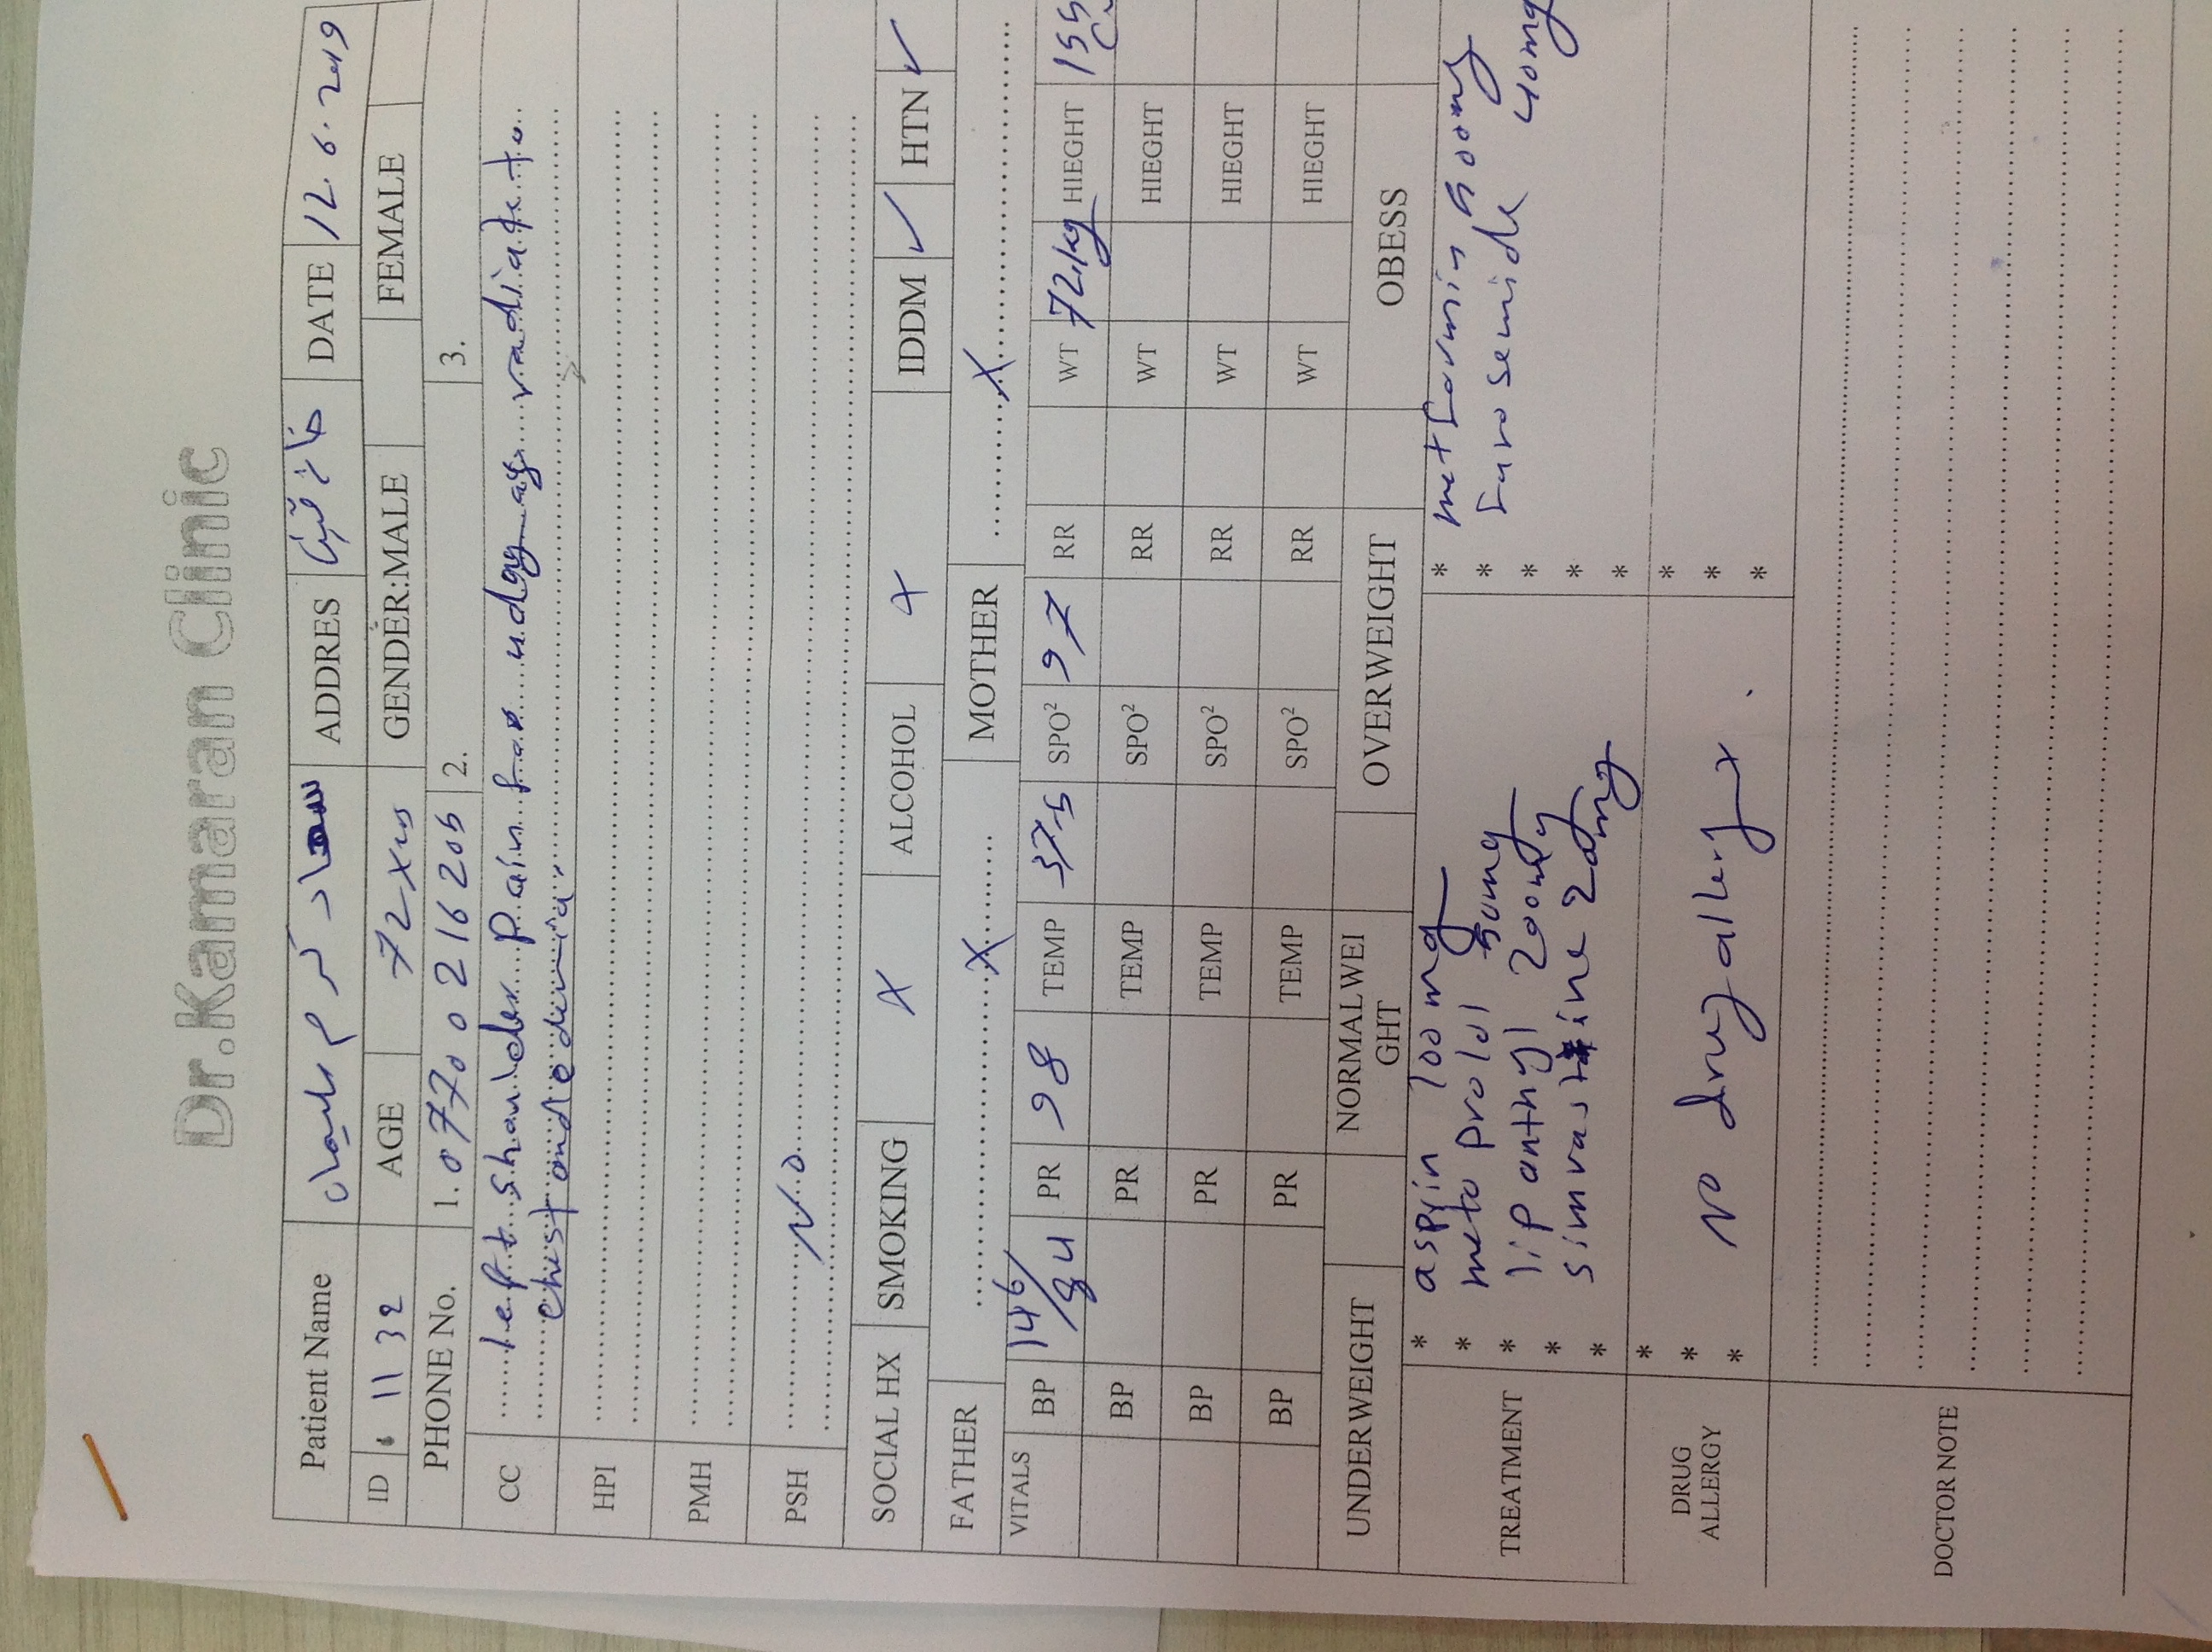 Dr.Kamaran Clinic
Patient Name سعاد كرم سليمان ADDRES خانقين DATE 12.6.2019
ID 1132 AGE 72 GENDER:MALE FEMALE
PHONE No. 1. 07700216205 2. 3.
CC left shoulder pain udgy radiate to
chest and
HPI
PMH
PSH No
SOCIAL HX SMOKING X ALCOHOL X IDDM ✓ HTN ✓
FATHER X MOTHER X
VITALS BP 146/84 PR 98 TEMP 37.5 SPO² 97 RR WT 72kg HIEGHT 155
BP PR TEMP SPO² RR WT HIEGHT
BP PR TEMP SPO² RR WT HIEGHT
BP PR TEMP SPO² RR WT HIEGHT
UNDERWEIGHT NORMALWEI
GHT OVERWEIGHT OBESS
TREATMENT
* aspyin 100mg * metformin 500mg
* metoprolol 50mg * furosemide 40mg
* lipanthyl 200mg *
* simvastine 20mg *
* *
DRUG
ALLERGY
* *
* No drug allergy *
* *
DOCTOR NOTE